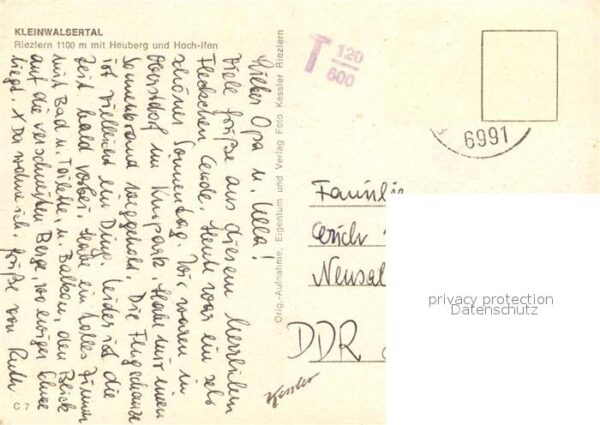 KLEINWALSERTAL
Riezlern 1100 m mit Heuberg und Hoch-Ifen
Lieber Opa u. Ulla!
Viele Grüße aus diesem herrlichen
Fleckchen Erde. Heute war ein sehr
schöner Sonnentag. Wir waren in
Oberstdorf im Kurpark. Habe mir einen
Sonnenbrand weggeholt. Die Flugschanze
ist vielleicht ein Ding. Leider ist die
Zeit bald vorbei. Habe ein tolles Zimmer
mit Bad u. Toilette, u. Balkon, den Blick
auf die verschneiten Berge, wo ewiger Schnee
liegt. X Da wohne ich. Grüße von Ruth
C 7
Orig.-Aufnahme, Eigentum und Verlag Foto Kessler Riezlern
Kessler
T 120
600
6991
Familie
Erich
Neusal
DDR
privacy protection
Datenschutz